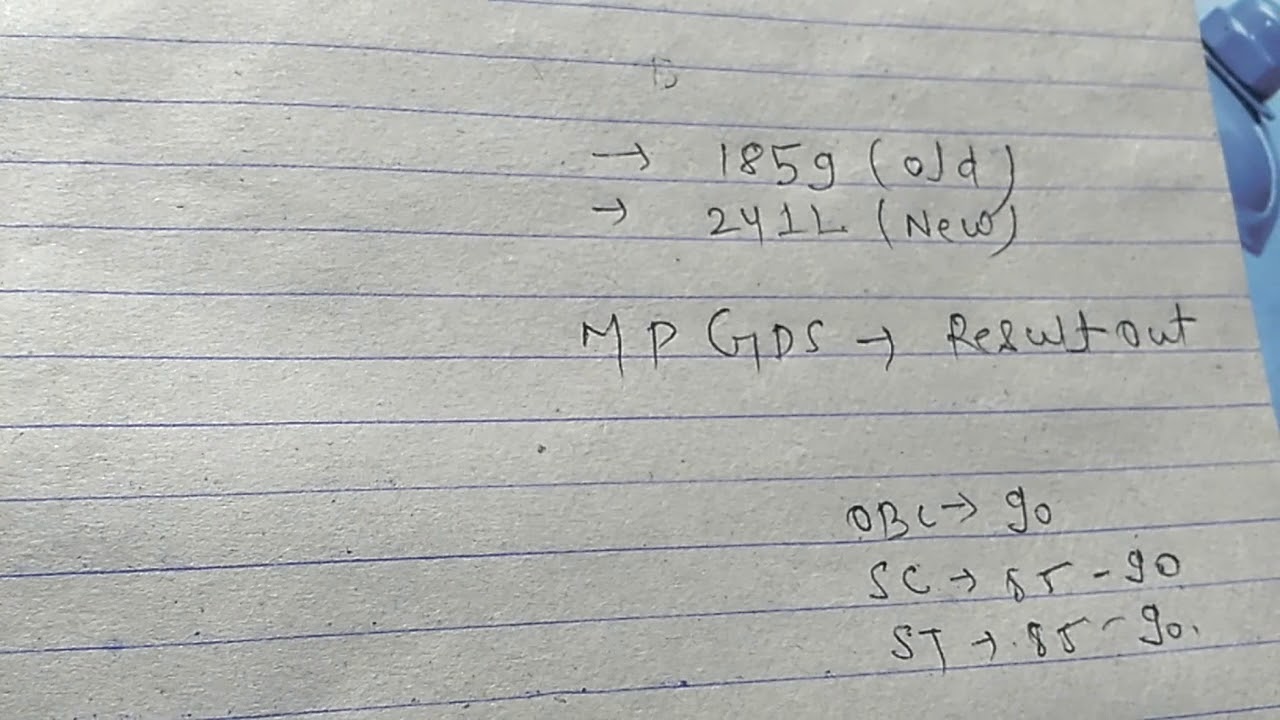 → 1859 (old)
→ 2411 (New)
MP GDS → Result out
OBC → 90
SC → 85 - 90
ST → 85 - 90.